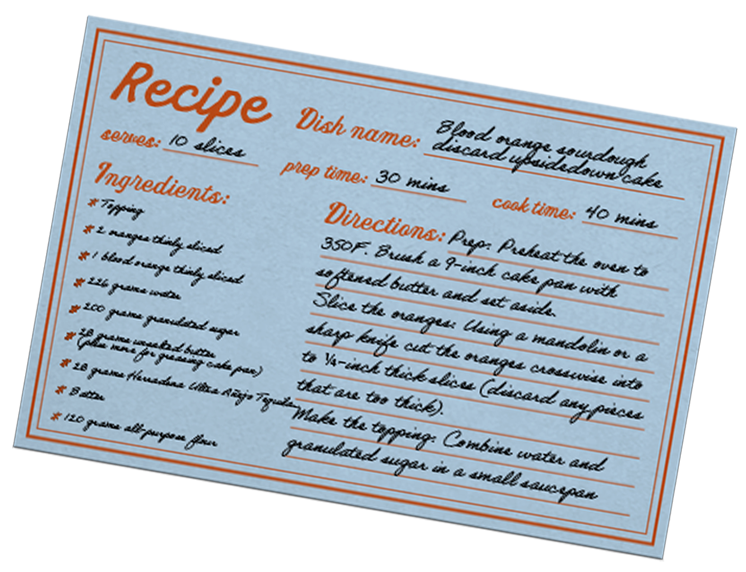 Recipe
Dish name: Blood orange sourdough
discard upsidedown cake
serves: 10 slices
prep time: 30 mins
cook time: 40 mins
Ingredients:
* Topping
* 2 oranges thinly sliced
* 1 blood orange thinly sliced
* 226 grams water
* 200 grams granulated sugar
* 28 grams unsalted butter
(plus more for greasing cake pan)
* 28 grams Herradura Ultra Añejo Tequila
* Batter
* 120 grams all-purpose flour
Directions: Prep: Preheat the oven to
350F. Brush a 9-inch cake pan with
softened butter and set aside.
Slice the oranges: Using a mandolin or a
sharp knife cut the oranges crosswise into
to ¼-inch thick slices (discard any pieces
that are too thick).
Make the topping: Combine water and
granulated sugar in a small saucepan